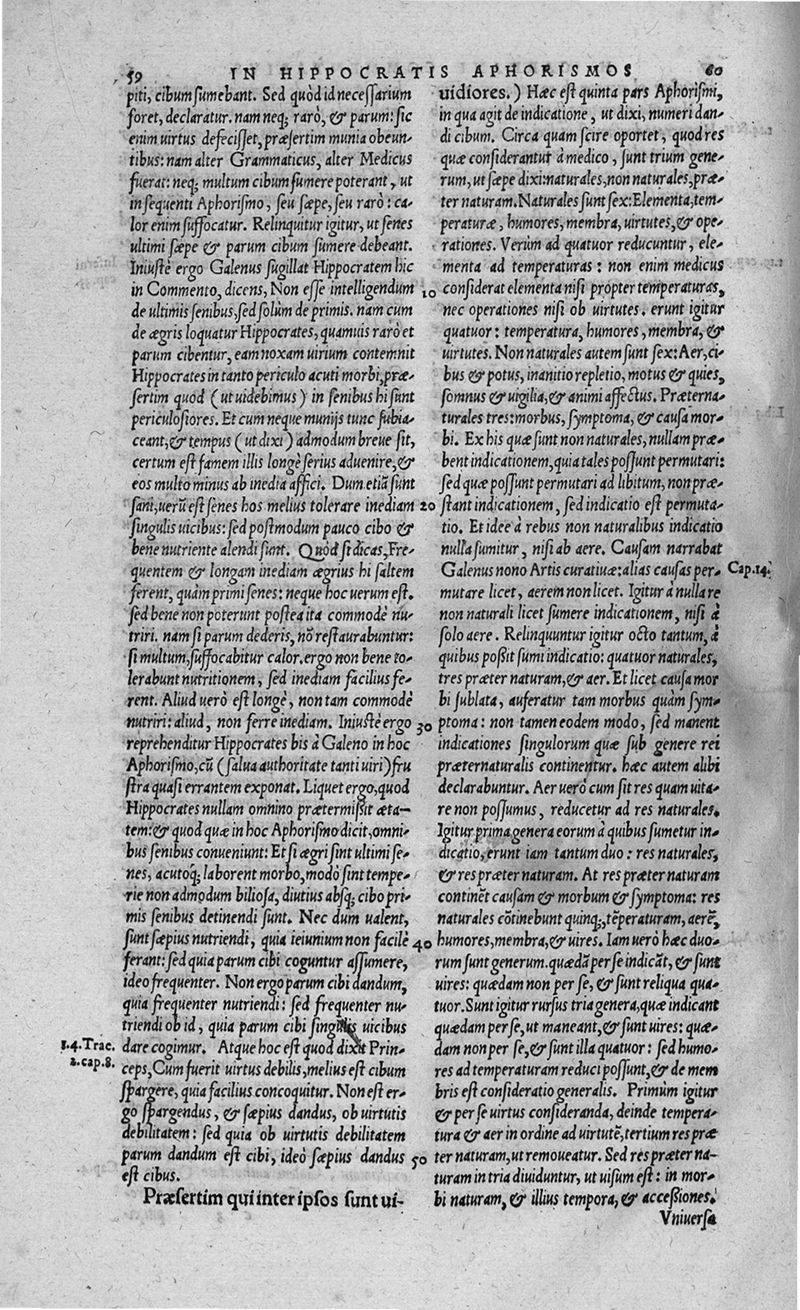 59 IN HIPPOCRATIS APHORISMOS 60
piti, cibum sumebant. Sed quòd id necessarium
foret, declaratur. nam neq; rarò, & parum: sic
enim uirtus defecisset, præsertim munia obeun-
tibus: nam alter Grammaticus, alter Medicus
fuerat: neq; multum cibum sumere poterant, ut
in sequenti Aphorismo, seu sæpe, seu rarò: ca-
lor enim suffocatur. Relinquitur igitur, ut senes
ultimi sæpe & parum cibum sumere debeant.
Iniustè ergo Galenus sugillat Hippocratem hic
in Commento, dicens, Non esse intelligendum
de ultimis senibus, sed solùm de primis. nam cum
de ægris loquatur Hippocrates, quamuis rarò et
parum cibentur, eam noxam uirium contemnit
Hippocrates in tanto periculo acuti morbi, præ-
sertim quòd (ut uidebimus) in senibus hi sunt
periculosiores. Et cum neque munijs tunc subia-
ceant, & tempus (ut dixi) admodum breue sit,
certum est famem illis longè serius aduenire, &
eos multo minus ab inedia affici. Dum etiã sunt
sani, uerũ est senes hos melius tolerare inediam
singulis uicibus: sed postmodum pauco cibo &
bene nutriente alendi sunt. Quòd si dicas, Fre-
quentem & longam inediam ægrius hi saltem
ferent, quàm primi senes: neque hoc uerum est.
sed bene non poterunt postea ita commodè nu-
triri. nam si parum dederis, nõ restaurabuntur:
si multum, suffocabitur calor. ergo non bene to-
lerabunt nutritionem, sed inediam facilius fe-
rent. Aliud uerò est longè, non tam commodè
nutriri: aliud, non ferre inediam. Iniustè ergo
reprehenditur Hippocrates bis à Galeno in hoc
Aphorismo, cũ (salua authoritate tanti uiri) fru
stra quasi errantem exponat. Liquet ergo, quod
Hippocrates nullam omnino prætermisit æta-
tem: & quod quæ in hoc Aphorismo dicit, omni-
bus senibus conueniunt: Et si ægri sint ultimi se-
nes, acutoq; laborent morbo, modò sint tempe-
rie non admodum biliosa, diutius absq; cibo pri-
mis senibus detinendi sunt. Nec dum ualent,
sunt sæpius nutriendi, quia ieiunium non facilè
ferant: sed quia parum cibi coguntur assumere,
ideo frequenter. Non ergo parum cibi dandum,
quia frequenter nutriendi: sed frequenter nu-
triendi ob id, quia parum cibi singulis uicibus
dare cogimur. Atque hoc est quod dixit Prin-
ceps, Cum fuerit uirtus debilis, melius est cibum
spargere, quia facilius concoquitur. Non est er-
go spargendus, & sæpius dandus, ob uirtutis
debilitatem: sed quia ob uirtutis debilitatem
parum dandum est cibi, ideò sæpius dandus
est cibus.
Præsertim qui inter ipsos sunt ui-
1.4. Trac.
2. cap. 8.
10
20
30
40
50
uidiores.) Hæc est quinta pars Aphorismi,
in qua agit de indicatione, ut dixi, numeri dan-
di cibum. Circa quam scire oportet, quod res
quæ considerantur à medico, sunt trium gene-
rum, ut sæpe dixi: naturales, non naturales, præ-
ter naturam. Naturales sunt sex: Elementa, tem-
peraturæ, humores, membra, uirtutes, & ope-
rationes. Verùm ad quatuor reducuntur, ele-
menta ad temperaturas: non enim medicus
considerat elementa nisi propter temperaturas,
nec operationes nisi ob uirtutes. erunt igitur
quatuor: temperatura, humores, membra, &
uirtutes. Non naturales autem sunt sex: Aer, ci-
bus & potus, inanitio repletio, motus & quies,
somnus & uigilia, & animi affectus. Præterna-
turales tres: morbus, symptoma, & causa mor-
bi. Ex his quæ sunt non naturales, nullam præ-
bent indicationem, quia tales possunt permutari:
sed quæ possunt permutari ad libitum, non præ-
stant indicationem, sed indicatio est permuta-
tio. Et idee à rebus non naturalibus indicatio
nulla sumitur, nisi ab aere. Causam narrabat
Galenus nono Artis curatiuæ: alias causas per-
mutare licet, aerem non licet. Igitur à nulla re
non naturali licet sumere indicationem, nisi à
solo aere. Relinquuntur igitur octo tantum, à
quibus poßit sumi indicatio: quatuor naturales,
tres præter naturam, & aer. Et licet causa mor
bi sublata, auferatur tam morbus quàm sym-
ptoma: non tamen eodem modo, sed manent
indicationes singulorum quæ sub genere rei
præternaturalis continentur. hæc autem alibi
declarabuntur. Aer uerò cum sit res quam uita-
re non possumus, reducetur ad res naturales.
Igitur prima genera eorum à quibus sumetur in-
dicatio, erunt iam tantum duo: res naturales,
& res præter naturam. At res præter naturam
continẽt causam & morbum & symptoma: res
naturales cõtinebunt quinq;, tẽperaturam, aerẽ,
humores, membra, & uires. Iam uerò hæc duo-
rum sunt generum. quædã per se indicãt, & sunt
uires: quædam non per se, & sunt reliqua qua-
tuor. Sunt igitur rursus tria genera, quæ indicant
quædam per se, ut maneant, & sunt uires: quæ-
dam non per se, & sunt illa quatuor: sed humo-
res ad temperaturam reduci possunt, & de mem
bris est consideratio generalis. Primùm igitur
& per se uirtus consideranda, deinde tempera-
tura & aer in ordine ad uirtutẽ, tertium res præ
ter naturam, ut remoueatur. Sed res præter na-
turam in tria diuiduntur, ut uisum est: in mor-
bi naturam, & illius tempora, & acceßiones.
Vniuersa
Cap. 14.